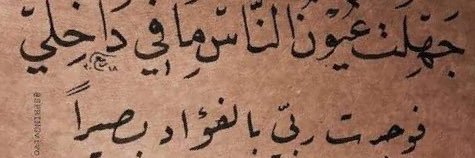 جَهِلَت عُيُوْنُ النَّاسِ مَا فِي دَاخِلِي
فوجدت ربّي بالفؤاد بصيراً